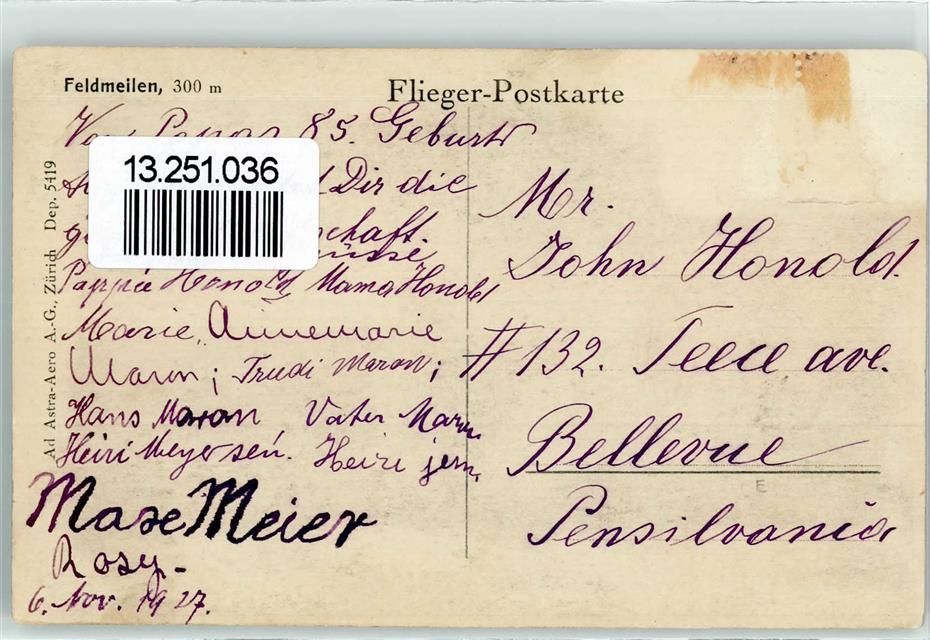 Feldmeilen, 300 m
Flieger-Postkarte
85. Geburts
13.251.036
Dir die
Grüsse
Pappa Honold, Mama Honold
Marie, Annemarie
Maron; Trudi Maron;
Hans Maron Vater Maron
Heiri Meyer sen. Heiri jun.
Mase Meier
Rosy-
6. Nov. 1927.
Ad Astra-Aero A.-G., Zürich Dep. 5419
Mr.
John Honold.
# 132. Teece ave.
Bellevue
E
Pensilvania